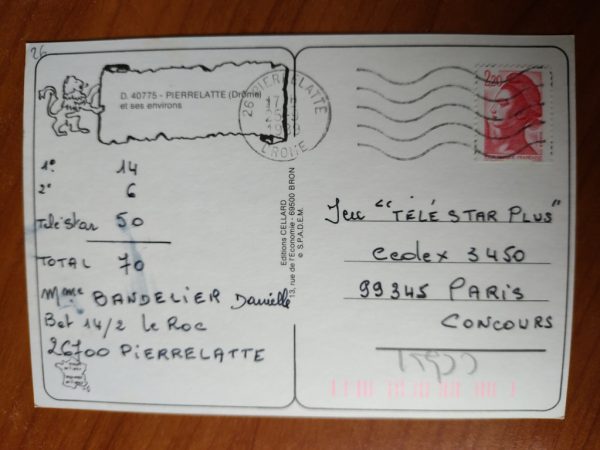 26
D. 40775 - PIERRELATTE (Drôme)
et ses environs
26 PIERRELATTE
DROME
2,20
1° 14
2° 6
Télé star 50
TOTAL 70
Mme BANDELIER Danielle
Bat 14/2 Le Roc
26700 PIERRELATTE
Editions CELLARD
13, rue de l'Economie - 69500 BRON
© S.P.A.D.E.M.
Jeu "TÉLÉ STAR PLUS"
Cedex 3450
99345 PARIS
CONCOURS